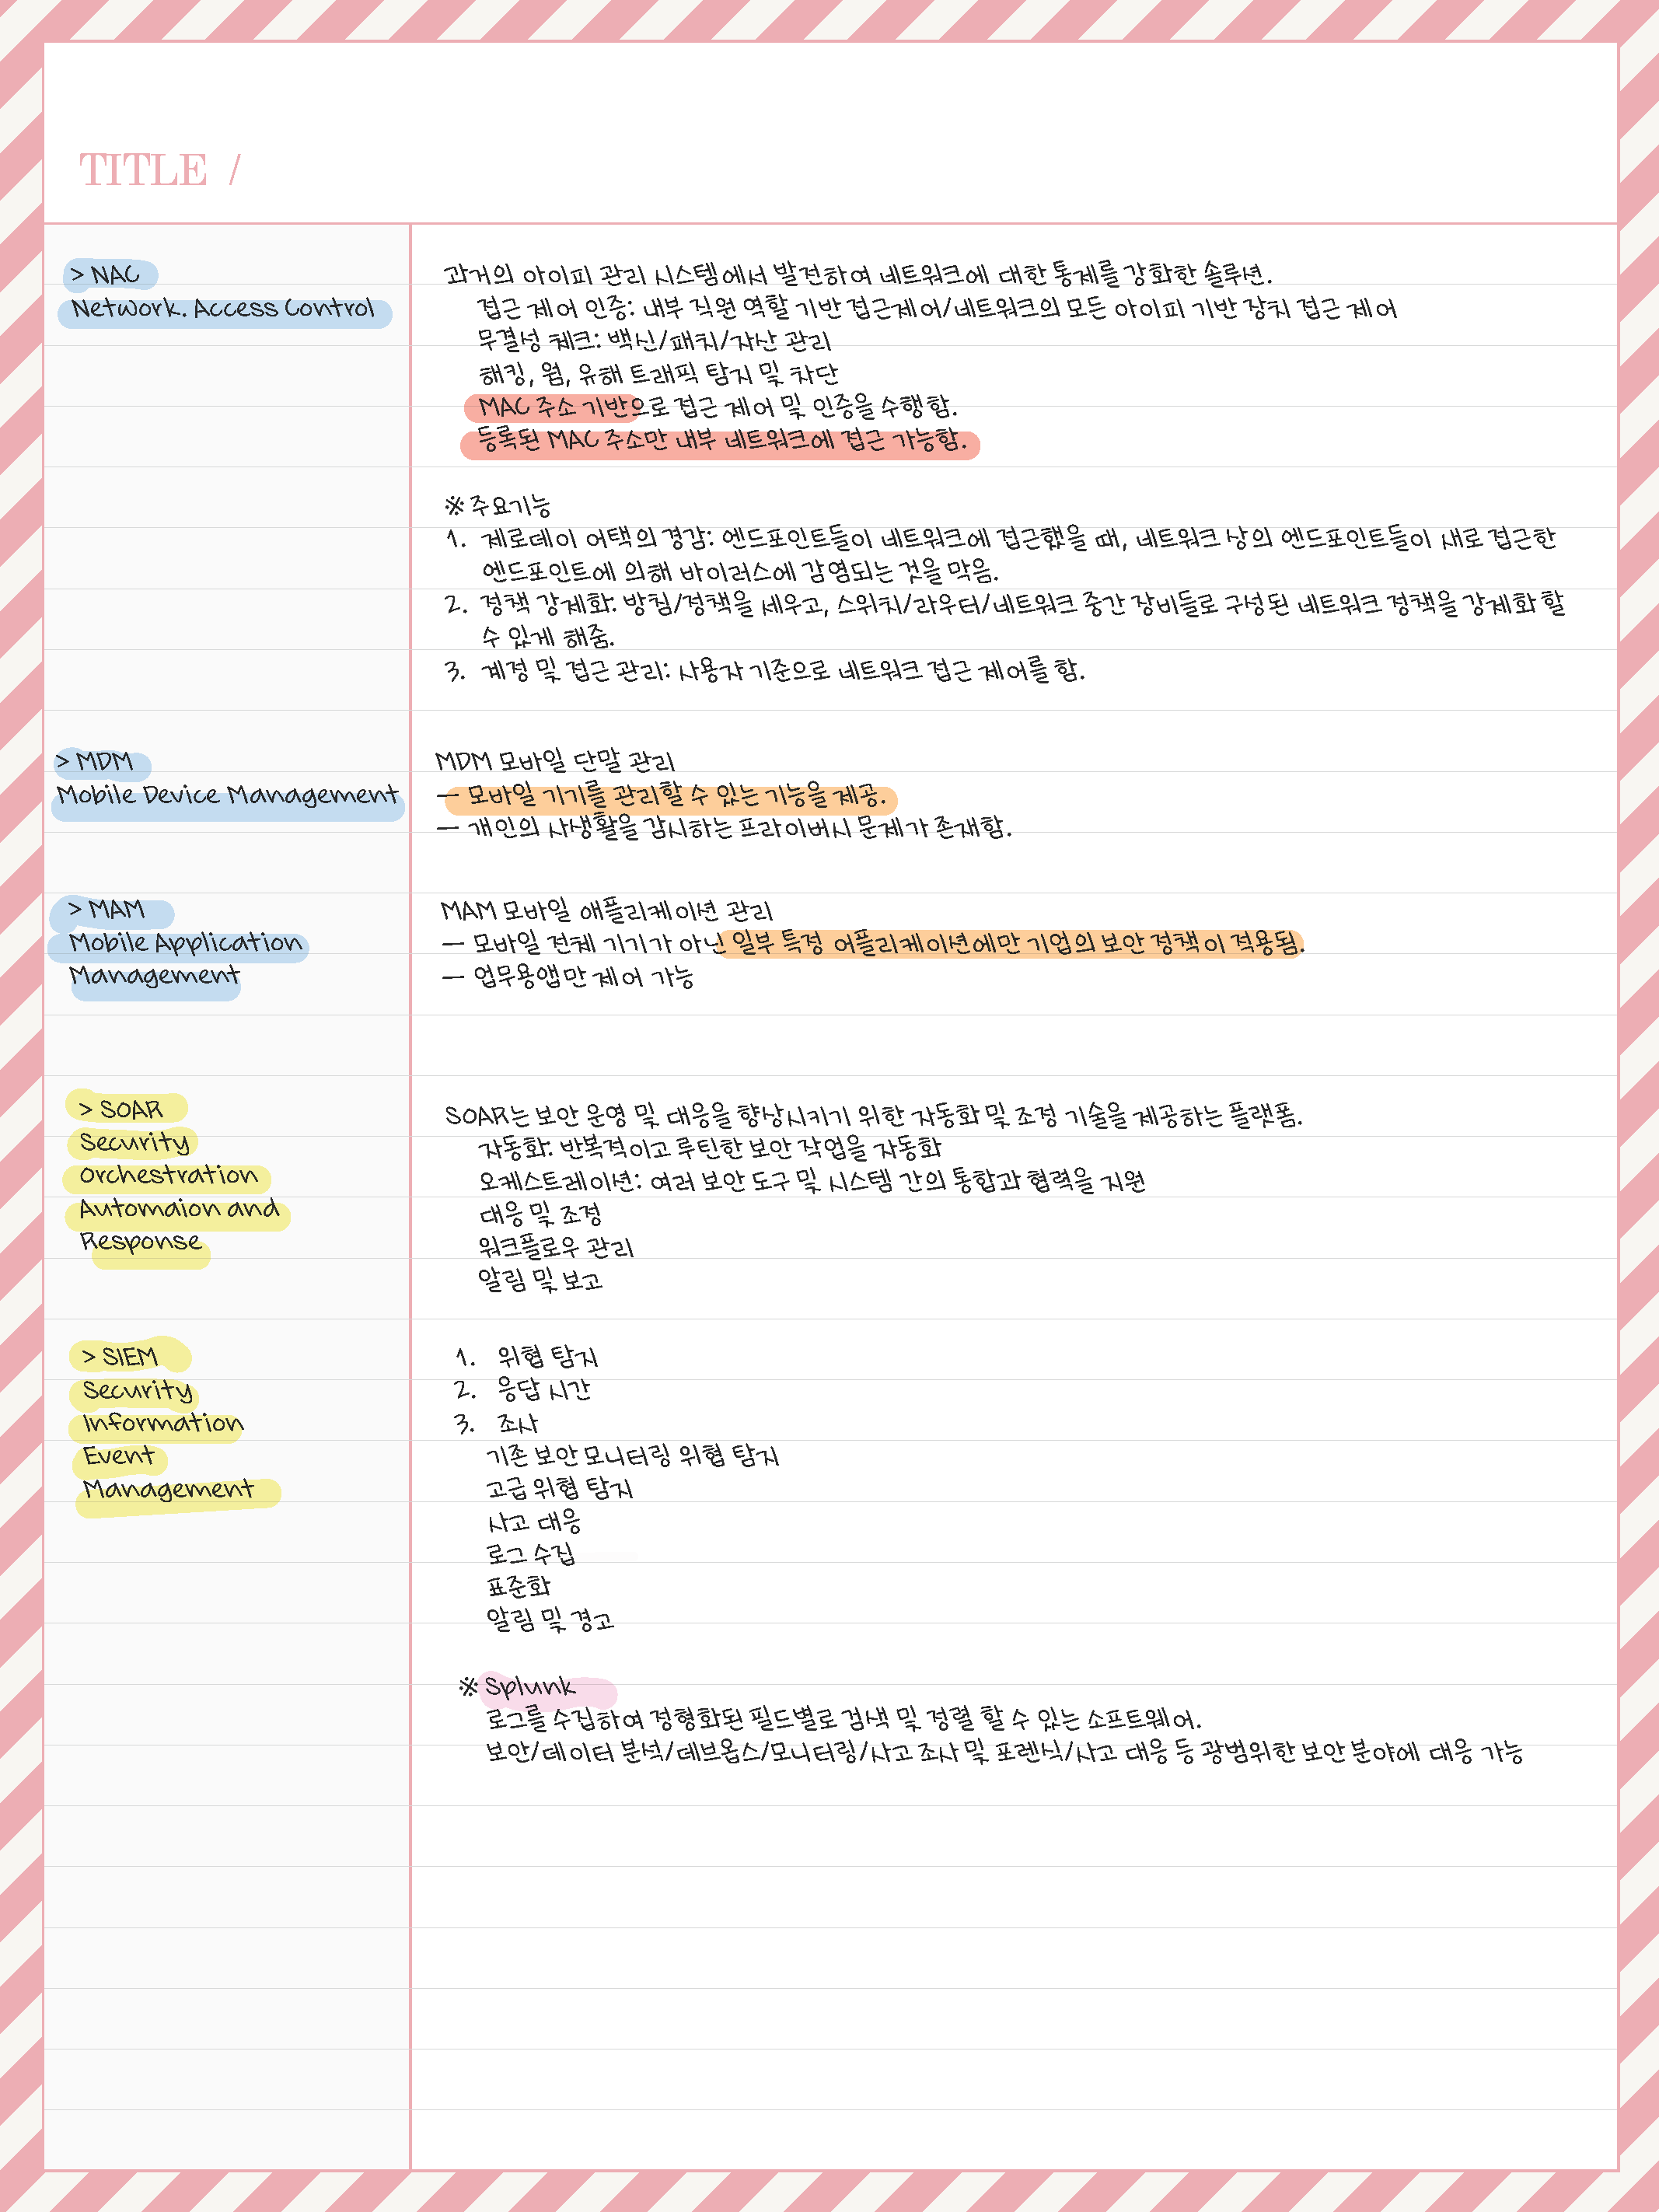 TITLE /
> NAC
Network. Access Control
과거의 아이피 관리 시스템에서 발전하여 네트워크에 대한 통제를 강화한 솔루션.
접근 제어 인증: 내부 직원 역할 기반 접근제어/네트워크의 모든 아이피 기반 장치 접근 제어
무결성 체크: 백신/패치/자산 관리
해킹, 웜, 유해 트래픽 탐지 및 차단
MAC 주소 기반으로 접근 제어 및 인증을 수행함.
등록된 MAC 주소만 내부 네트워크에 접근 가능함.
※ 주요기능
1. 제로데이 어택의 경감: 엔드포인트들이 네트워크에 접근했을 때, 네트워크 상의 엔드포인트들이 새로 접근한
엔드포인트에 의해 바이러스에 감염되는 것을 막음.
2. 정책 강제화: 방침/정책을 세우고, 스위치/라우터/네트워크 중간 장비들로 구성된 네트워크 정책을 강제화 할
수 있게 해줌.
3. 계정 및 접근 관리: 사용자 기준으로 네트워크 접근 제어를 함.
> MDM
Mobile Device Management
MDM 모바일 단말 관리
— 모바일 기기를 관리할 수 있는 기능을 제공.
— 개인의 사생활을 감시하는 프라이버시 문제가 존재함.
> MAM
Mobile Application
Management
MAM 모바일 애플리케이션 관리
— 모바일 전체 기기가 아닌 일부 특정 어플리케이션에만 기업의 보안 정책이 적용됨.
— 업무용앱만 제어 가능
> SOAR
Security
Orchestration
Automaion and
Response
SOAR는 보안 운영 및 대응을 향상시키기 위한 자동화 및 조정 기술을 제공하는 플랫폼.
자동화: 반복적이고 루틴한 보안 작업을 자동화
오케스트레이션: 여러 보안 도구 및 시스템 간의 통합과 협력을 지원
대응 및 조정
워크플로우 관리
알림 및 보고
> SIEM
Security
Information
Event
Management
1. 위협 탐지
2. 응답 시간
3. 조사
기존 보안 모니터링 위협 탐지
고급 위협 탐지
사고 대응
로그 수집
표준화
알림 및 경고
※ Splunk
로그를 수집하여 정형화된 필드별로 검색 및 정렬 할 수 있는 소프트웨어.
보안/데이터 분석/데브옵스/모니터링/사고 조사 및 포렌식/사고 대응 등 광범위한 보안 분야에 대응 가능